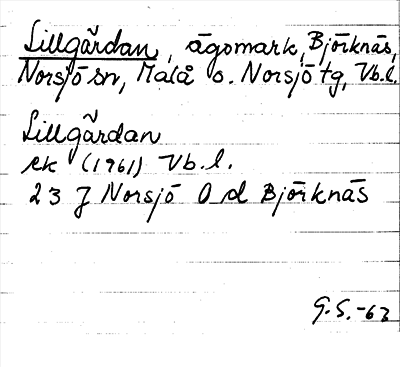 Lillgärdan, ägomark, Björknäs,
Norsjö sn, Malå o. Norsjö tg, Vb.l.
Lillgärdan
ek (1961) Vb.l.
23 J Norsjö 0 d Björknäs
G.S.-63